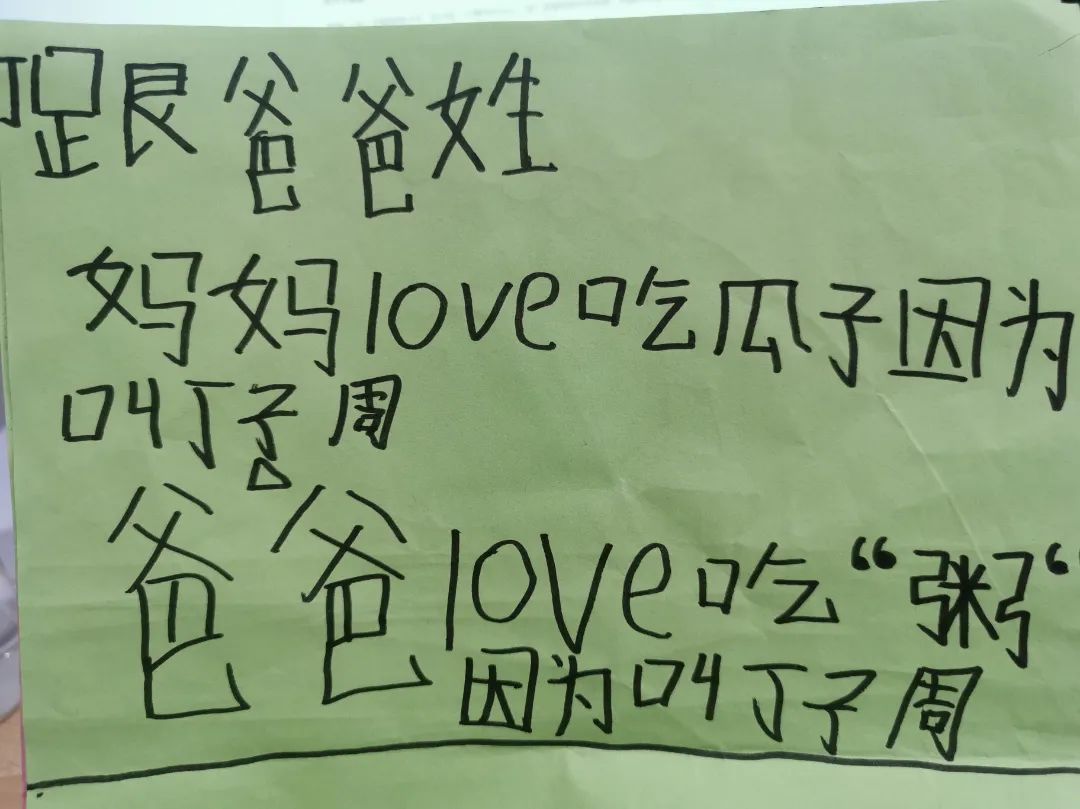 丁是跟爸爸姓
妈妈love吃瓜子因为
叫丁子周
爸爸love吃“粥“
因为叫丁子周